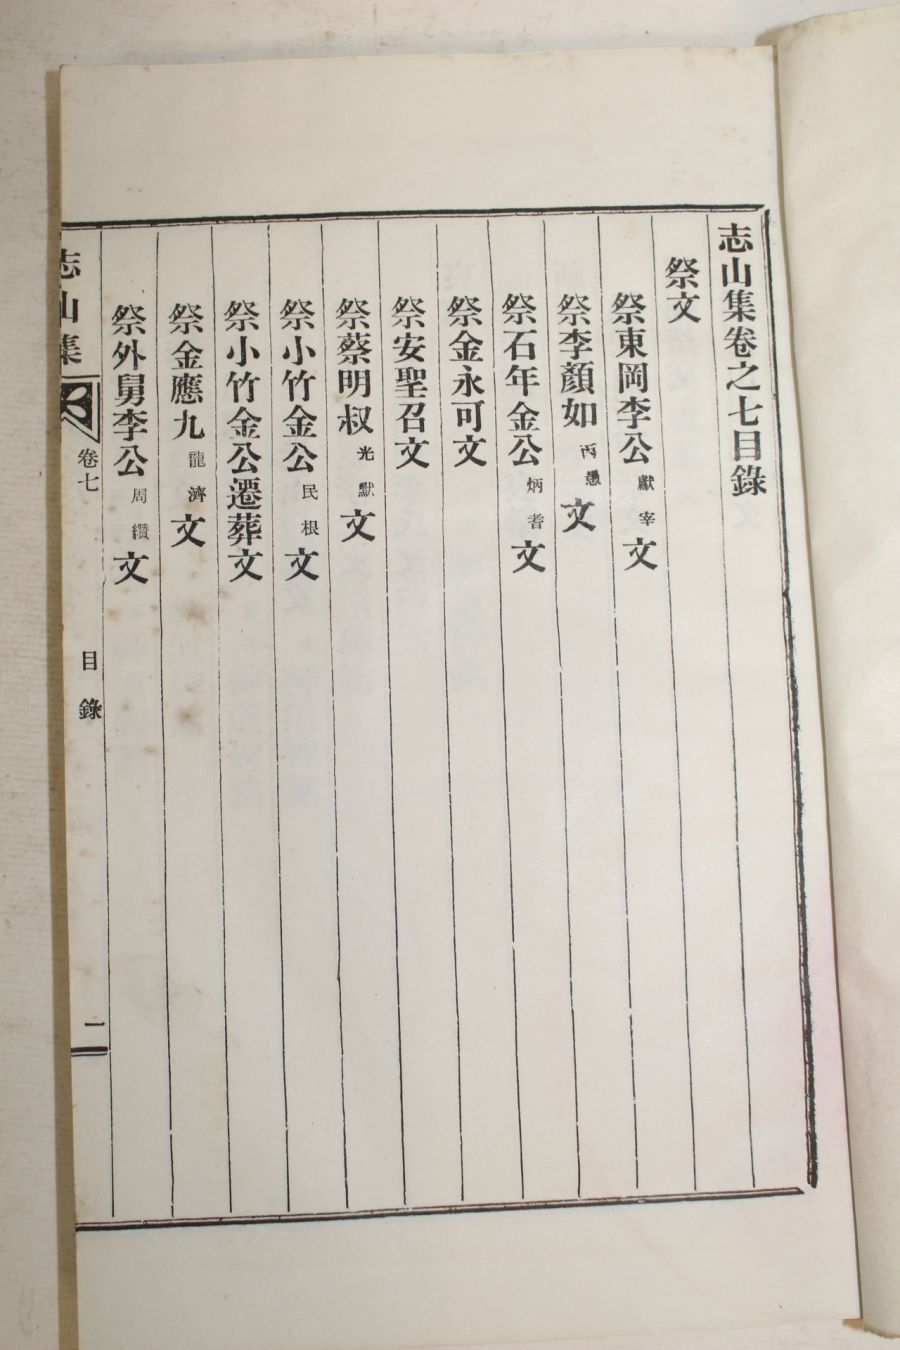 志山集卷之七目錄
祭文
祭東岡李公獻宰文
祭李顔如丙憩文
祭石年金公炳耉文
祭金永可文
祭安聖召文
祭蔡明叔光默文
祭小竹金公民根文
祭小竹金公遷葬文
祭金應九龍濟文
祭外舅李公周纘文
志山集
卷七
目錄
一